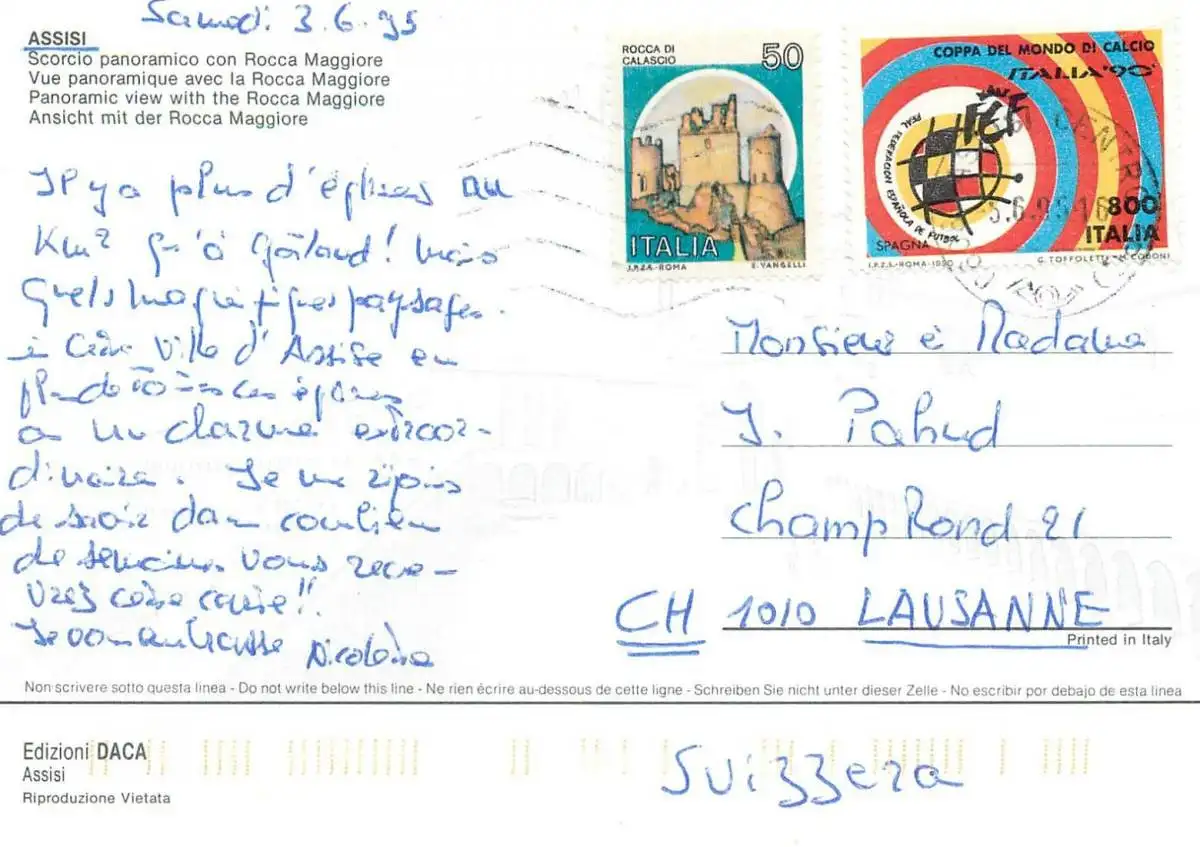 Samedi 3.6.95
ASSISI
Scorcio panoramico con Rocca Maggiore
Vue panoramique avec la Rocca Maggiore
Panoramic view with the Rocca Maggiore
Ansicht mit der Rocca Maggiore
ROCCA DI
CALASCIO
50
ITALIA
I.P.Z.S.-ROMA
E. VANGELLI
COPPA DEL MONDO DI CALCIO
ITALIA '90
REAL FEDERACION ESPAÑOLA DE FUTBOL
SPAGNA
800
ITALIA
I.P.Z.S.-ROMA-1990
G. TOFFOLETTI-M. CODONI
CENTRO
5.6.95-16
Il y a plus d'églises au
Km² qu'à Gotland! Mais
Quels magnifiques paysages.
Ville d'Assise
églises
a un charme extraor-
dinaire. Je me réjouis
de savoir dans combien
de semaines vous rece-
vrez cette carte!!
Je vous embrasse
Monsieur & Madame
J. Pahud
Champ Rond 21
CH 1010 LAUSANNE
Printed in Italy
Non scrivere sotto questa linea - Do not write below this line - Ne rien écrire au-dessous de cette ligne - Schreiben Sie nicht unter dieser Zelle - No escribir por debajo de esta linea
Edizioni DACA
Assisi
Riproduzione Vietata
Svizzera